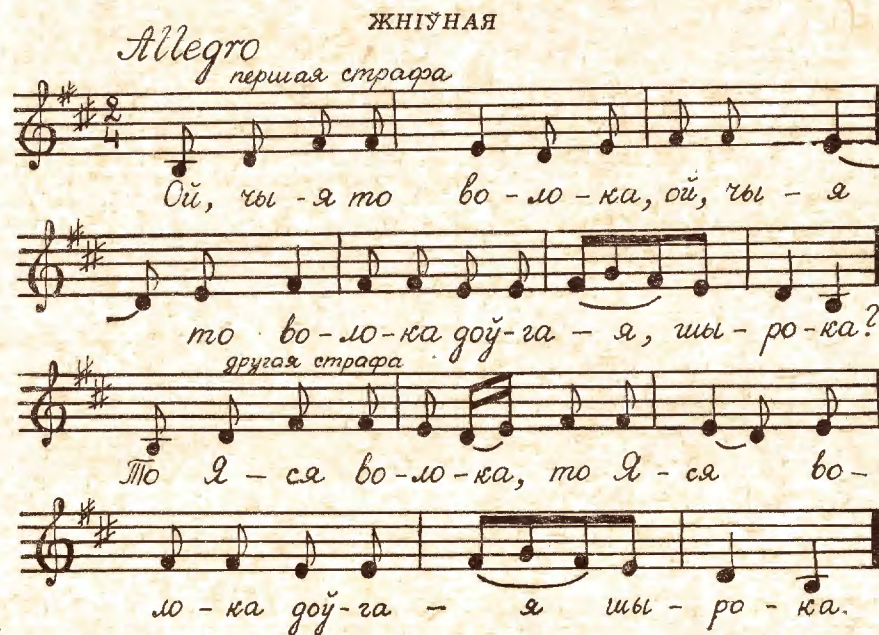 ЖНІЎНАЯ
Allegro
першая страфа
2
4
Ой, чы - я то во - ло - ка, ой, чы - я
то во - ло - ка доў - га - я, шы - ро - ка?
другая страфа
То Я - ся во - ло - ка, то Я - ся во -
ло - ка доў - га - я шы - ро - ка.